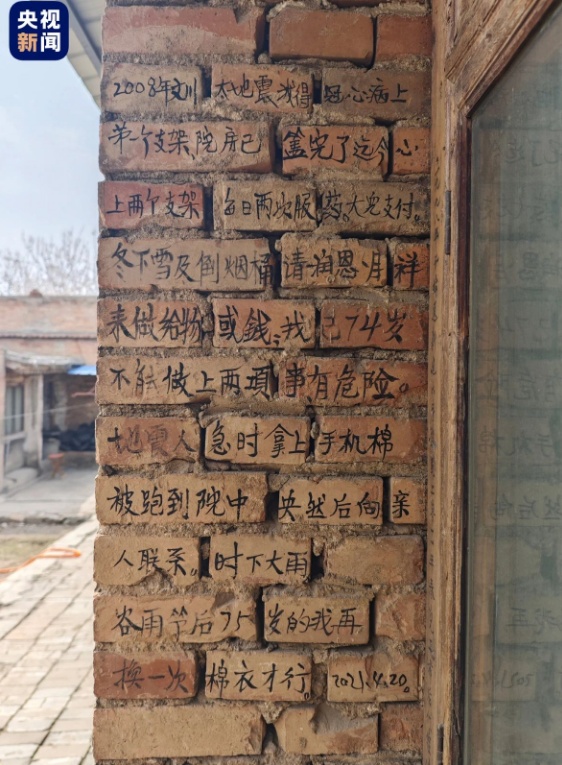 央视
新闻
2008年汶川大地震我得冠心病上
第一个支架,院房已盖完了迄今心
上两个支架每日两次服药大儿支付。
冬下雪及倒烟桶请润恩月祥
来做给物或钱,我已74岁
不能做上两项事有危险。
地震人急时拿上手机棉
被跑到院中央然后向亲
人联系。时下大雨
谷雨节后75岁的我再
换一次棉衣才行。2021.4.20。